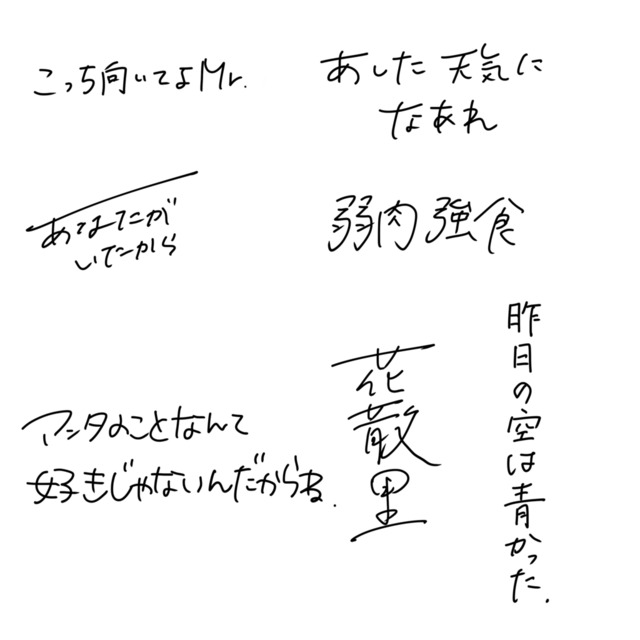 こっち向いてよMr.
あした天気に
なあれ
あなたが
いたから
弱肉強食
アンタのことなんて
好きじゃないんだからね.
花散里
昨日の空は青かった.